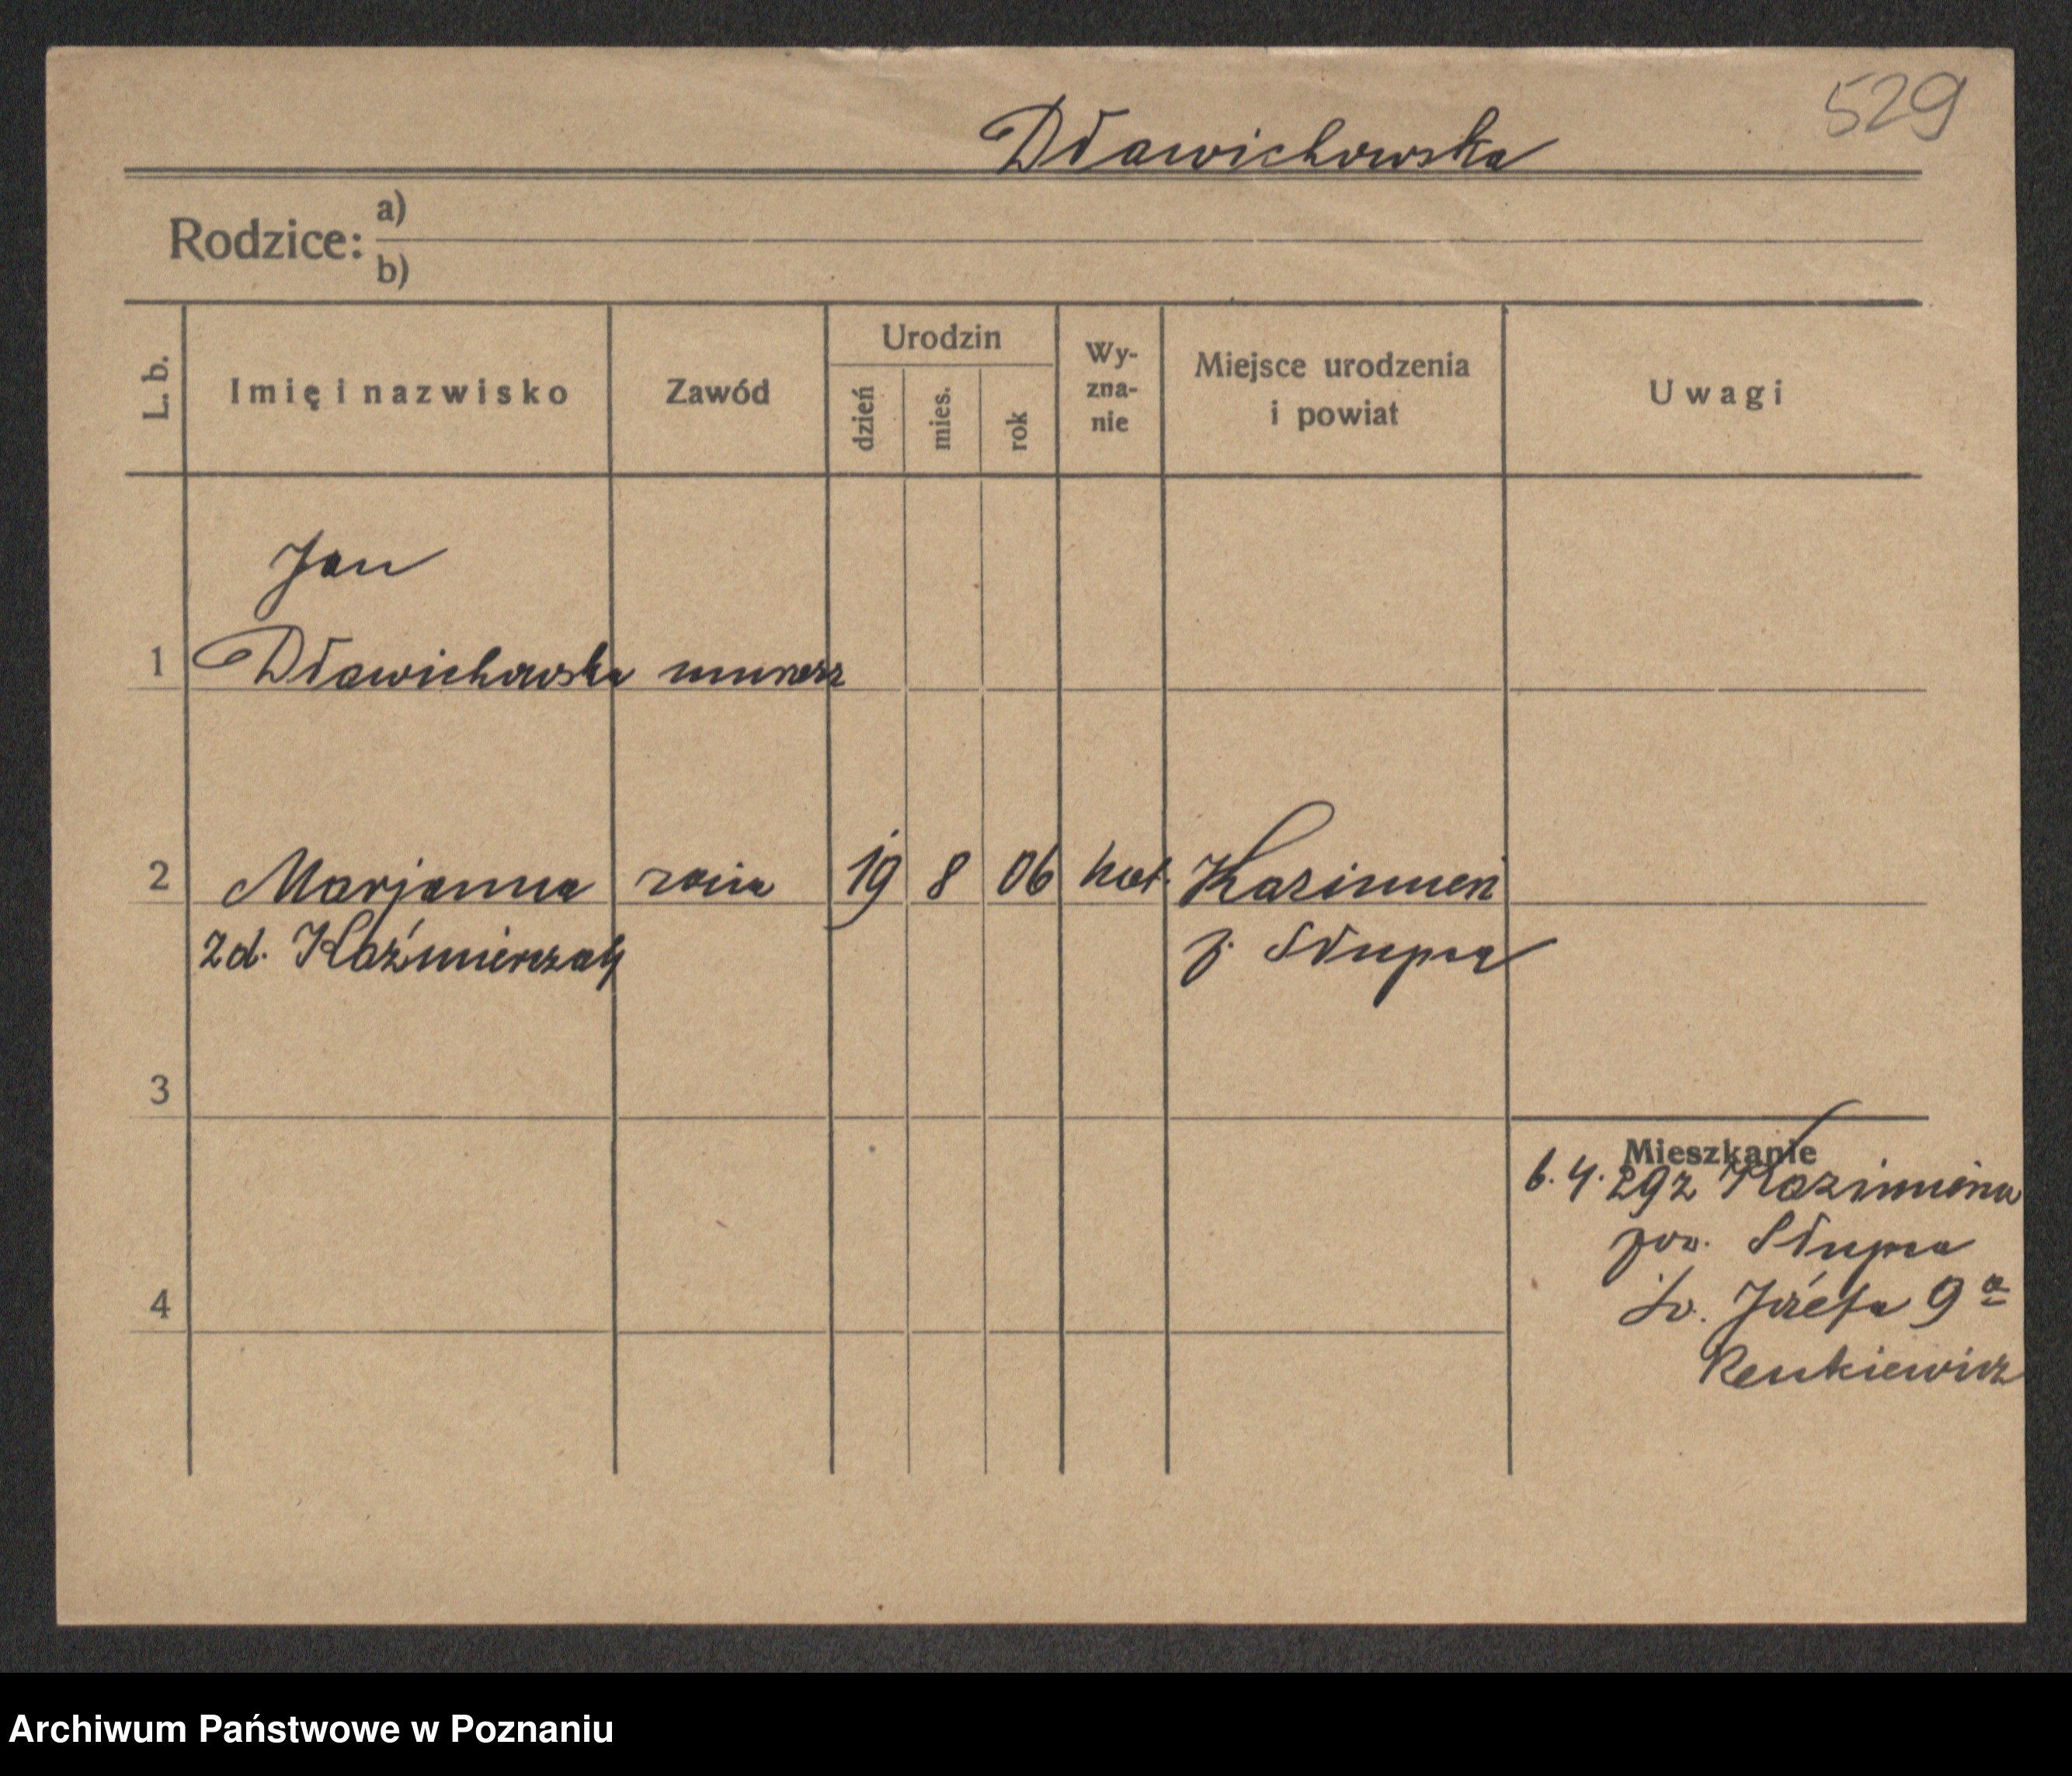 529
Dławichowska
Rodzice: a)
b)
L. b.
Imię i nazwisko
Zawód
Urodzin
dzień
mies.
rok
Wy-
zna-
nie
Miejsce urodzenia
i powiat
Uwagi
Jan
1 Dławichowska murarz
2 Marjanna 19 8 06 kat. Kazimierz
zd. Kaźmierczak p. Słupca
3
Mieszkanie
6.4.29 z Kazimierza
pow. Słupca
4 św. Józefa 9a
Renkiewicz
Archiwum Państwowe w Poznaniu